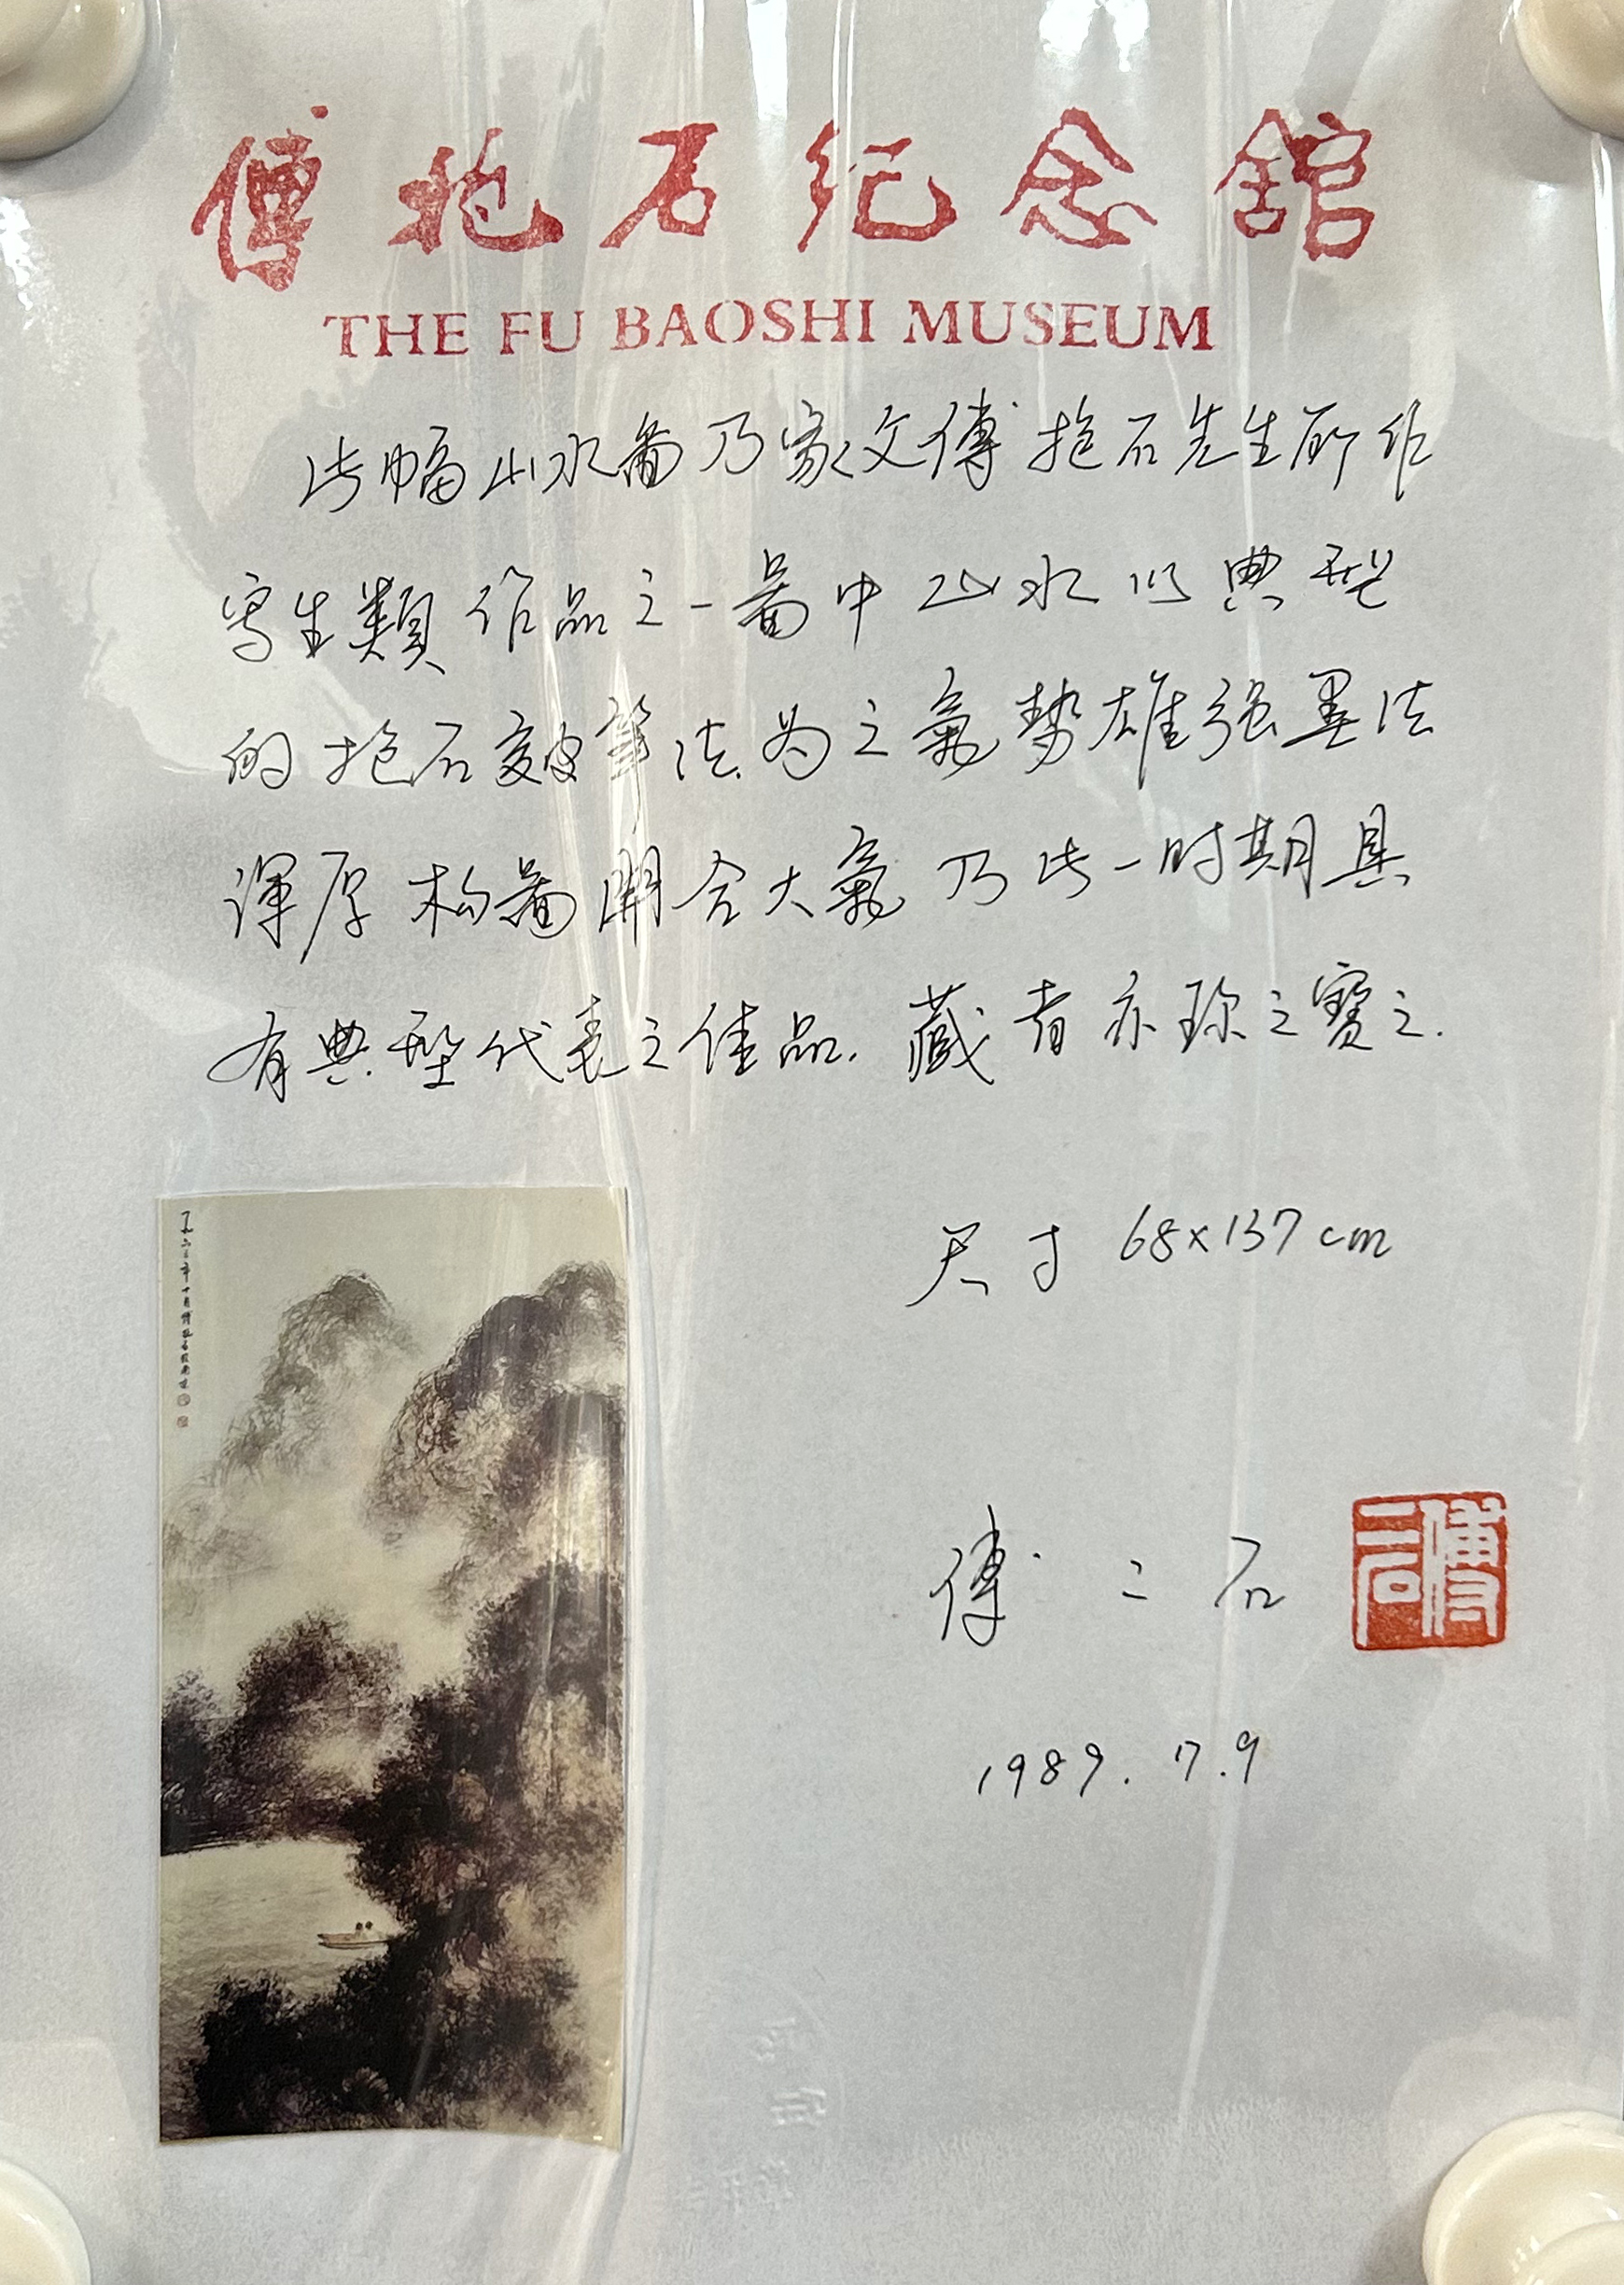 傅抱石紀念館
THE FU BAOSHI MUSEUM
此幅山水圖乃家父傅抱石先生所作
寫生類作品之一圖中山水以典型
的抱石皴筆法為之氣勢雄强墨法
渾厚构圖開合大氣乃此一时期具
有典型代表之佳品.藏者亦珎之寶之.
尺寸 68x137cm
傅二石
傅二石
1989.7.9